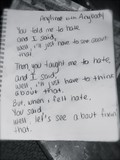 Anytime with Anybody
You told me to hate
and I said,
well, i'll just have to see about
that.
Then you taught me to hate,
and I said,
well, i'll just have to think
about that.
But, when i fell hate,
You said,
well let's see about
that.